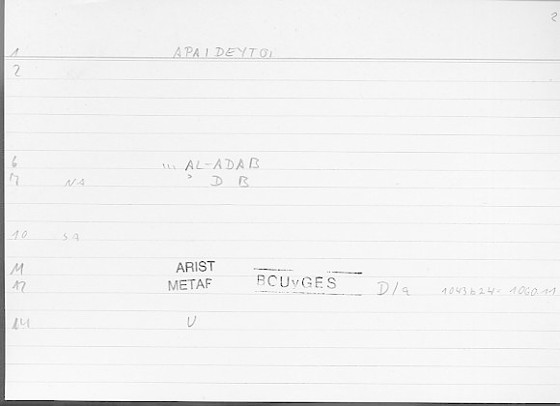 2
1 APAIDEYTOI
2
6 ,,, AL-ADAB
7 NA > D B
10 SA
11 ARIST
12 METAF BOUYGES D/a 1043b24- 1060.11
14 V